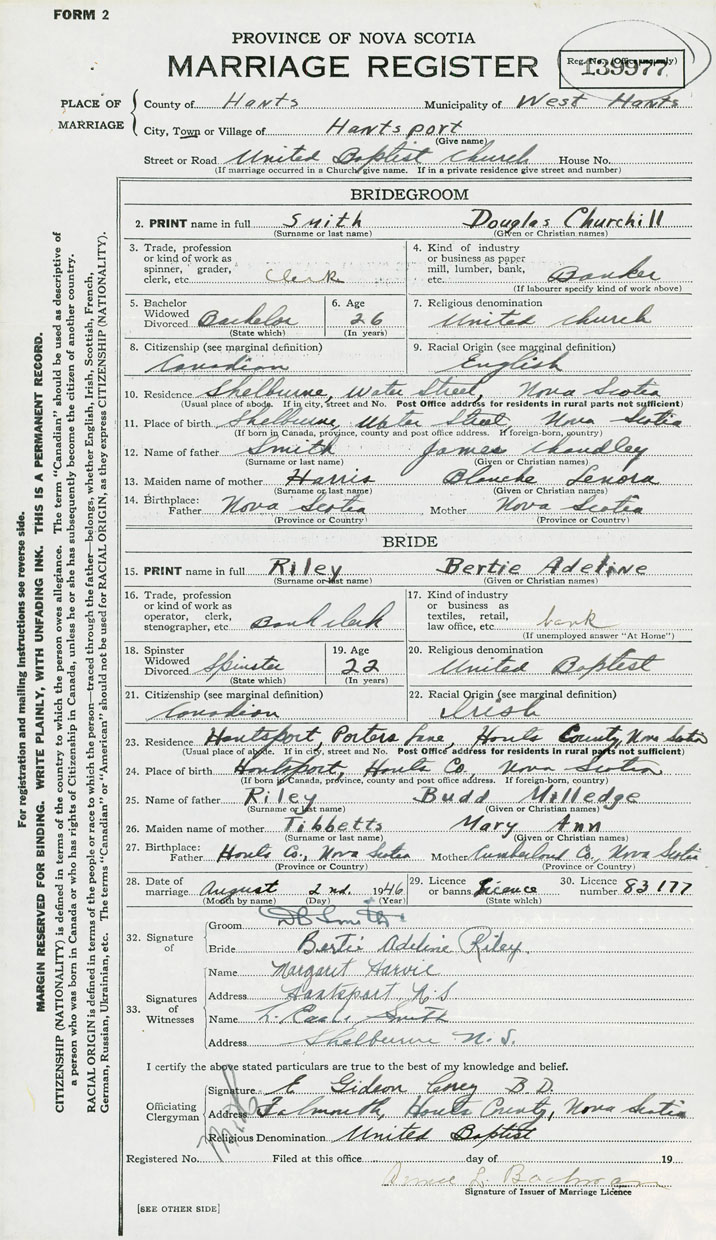 FORM 2
PROVINCE OF NOVA SCOTIA
MARRIAGE REGISTER
Reg. No. (Office use only)
139977
PLACE OF MARRIAGE
County of Hants Municipality of West Hants
City, Town or Village of Hantsport
(Give name)
Street or Road United Baptist Church House No.
(If marriage occurred in a Church give name. If in a private residence give street and number)
BRIDEGROOM
2. PRINT name in full Smith Douglas Churchill
(Surname or last name) (Given or Christian names)
3. Trade, profession or kind of work as spinner, grader, clerk, etc. Clerk
4. Kind of industry or business as paper mill, lumber, bank, etc. Banker
(If labourer specify kind of work above)
5. Bachelor Widowed Divorced Bachelor
(State which)
6. Age 26
(In years)
7. Religious denomination
United Church
8. Citizenship (see marginal definition)
Canadian
9. Racial Origin (see marginal definition)
English
10. Residence Shelburne, Water Street, Nova Scotia
(Usual place of abode. If in city, street and No. Post Office address for residents in rural parts not sufficient)
11. Place of birth Shelburne, Water Street, Nova Scotia
(If born in Canada, province, county and post office address. If foreign-born, country)
12. Name of father Smith James Chandley
(Surname or last name) (Given or Christian names)
13. Maiden name of mother Harris Blanche Lenora
(Surname or last name) (Given or Christian names)
14. Birthplace: Father Nova Scotia Mother Nova Scotia
(Province or Country) (Province or Country)
BRIDE
15. PRINT name in full Riley Bertie Adeline
(Surname or last name) (Given or Christian names)
16. Trade, profession or kind of work as operator, clerk, stenographer, etc. Bank clerk
17. Kind of industry or business as textiles, retail, law office, etc. bank
(If unemployed answer "At Home")
18. Spinster Widowed Divorced Spinster
(State which)
19. Age 22
(In years)
20. Religious denomination
United Baptist
21. Citizenship (see marginal definition)
Canadian
22. Racial Origin (see marginal definition)
Irish
23. Residence Hantsport, Porters Lane, Hants County, Nova Scotia
(Usual place of abode. If in city, street and No. Post Office address for residents in rural parts not sufficient)
24. Place of birth Hantsport, Hants Co., Nova Scotia
(If born in Canada, province, county and post office address. If foreign-born, country)
25. Name of father Riley Budd Milledge
(Surname or last name) (Given or Christian names)
26. Maiden name of mother Tibbetts Mary Ann
(Surname or last name) (Given or Christian names)
27. Birthplace: Father Hants Co., Nova Scotia Mother Cumberland Co, Nova Scotia
(Province or Country) (Province or Country)
28. Date of marriage August 2nd. 1946
(Month by name) (Day) (Year)
29. Licence or banns Licence
(State which)
30. Licence number 83177
32. Signature of
Groom DC Smith
Bride Bertie Adeline Riley.
33. Signatures of Witnesses
Name Margaret Harvie
Address Hantsport N.S
Name Smith
Address Shelburne N.S.
I certify the above stated particulars are true to the best of my knowledge and belief.
Officiating Clergyman
Signature E Gideon Corey B.D.
Address Falmouth, Hants County, Nova Scotia
Religious Denomination United Baptist
Registered No. Filed at this office day of 19
Signature of Issuer of Marriage Licence
[SEE OTHER SIDE]
For registration and mailing instructions see reverse side.
MARGIN RESERVED FOR BINDING. WRITE PLAINLY, WITH UNFADING INK. THIS IS A PERMANENT RECORD.
CITIZENSHIP (NATIONALITY) is defined in terms of the country to which the person owes allegiance. The term "Canadian" should be used as descriptive of
a person who was born in Canada or who has rights of Citizenship in Canada, unless he or she has subsequently become the citizen of another country.
RACIAL ORIGIN is defined in terms of the people or race to which the person—traced through the father—belongs, whether English, Irish, Scottish, French,
German, Russian, Ukrainian, etc. The terms "Canadian" or "American" should not be used for RACIAL ORIGIN, as they express CITIZENSHIP (NATIONALITY).